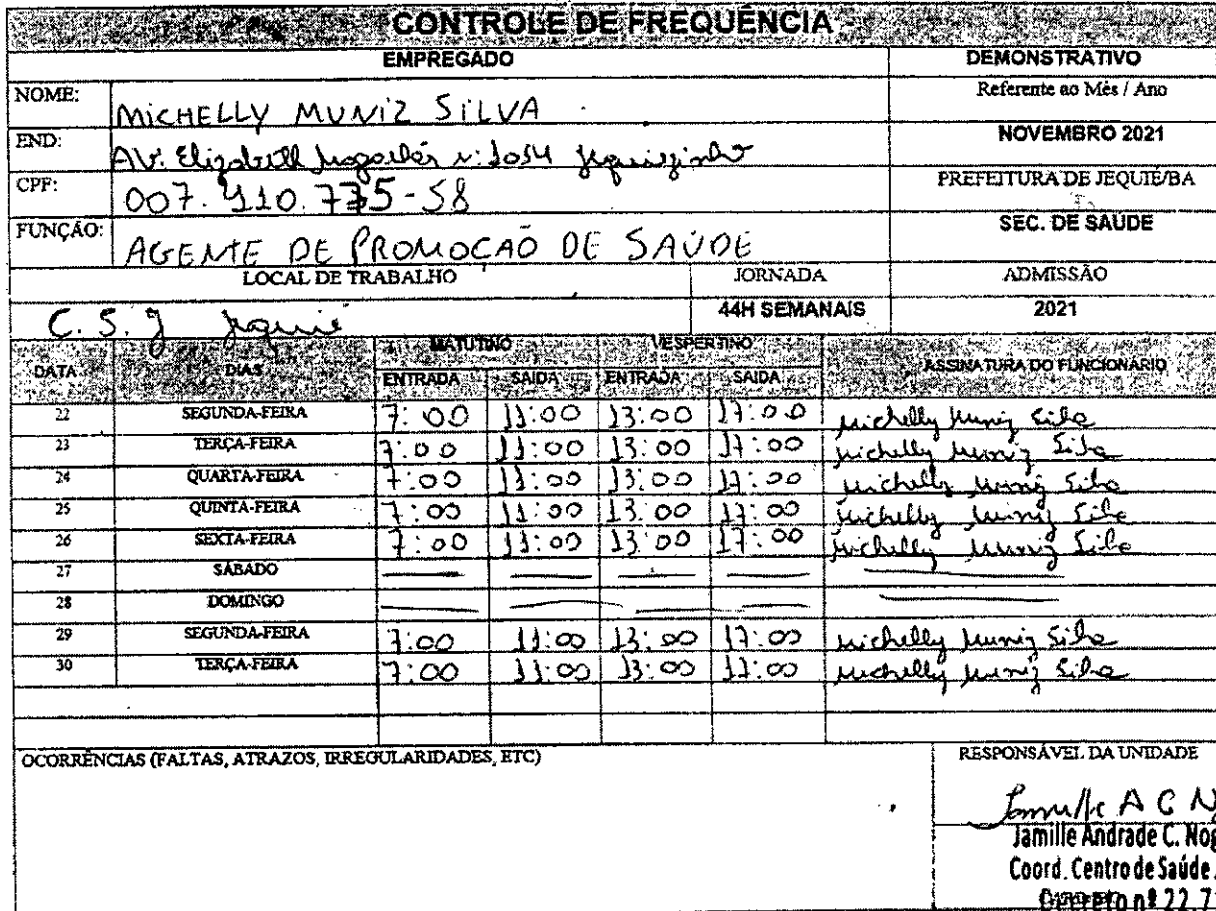 CONTROLE DE FREQUÊNCIA
EMPREGADO DEMONSTRATIVO
NOME: MICHELLY MUNIZ SILVA Referente ao Mês / Ano
END: AV. Elizabeth n: Jequiezinho NOVEMBRO 2021
CPF: 007.410.775-58 PREFEITURA DE JEQUIÉ/BA
FUNÇÃO: AGENTE DE PROMOCAO DE SAÚDE SEC. DE SAÚDE
LOCAL DE TRABALHO JORNADA ADMISSÃO
C. S. J Jequié 44H SEMANAIS 2021
MATUTINO VESPERTINO
DATA DIAS ENTRADA SAIDA ENTRADA SAIDA ASSINATURA DO FUNCIONÁRIO
22 SEGUNDA-FEIRA 7:00 11:00 13:00 17:00 Michelly Muniz Silva
23 TERÇA-FEIRA 7:00 11:00 13:00 17:00 Michelly Muniz Silva
24 QUARTA-FEIRA 7:00 11:00 13:00 17:00 Michelly Muniz Silva
25 QUINTA-FEIRA 7:00 11:00 13:00 17:00 Michelly Muniz Silva
26 SEXTA-FEIRA 7:00 11:00 13:00 17:00 Michelly Muniz Silva
27 SÁBADO
28 DOMINGO
29 SEGUNDA-FEIRA 7:00 11:00 13:00 17:00 Michelly Muniz Silva
30 TERÇA-FEIRA 7:00 11:00 13:00 17:00 Michelly Muniz Silva
OCORRÊNCIAS (FALTAS, ATRAZOS, IRREGULARIDADES, ETC) RESPONSÁVEL DA UNIDADE
Jamille A C N
Jamille Andrade C. Nog
Coord. Centro de Saúde
Decreto nº 22.7